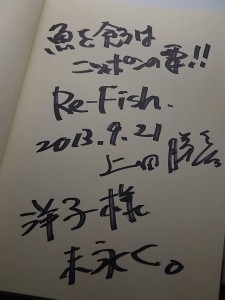 魚を食るは
ニッポンの幸!!
Re-Fish.
2013.9.21
上田勝彦
洋子様
末永く。